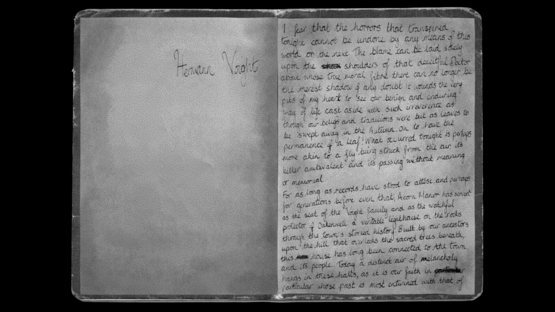 Hermann
I fear that the horrors that transpired
tonight cannot be undone by any means of this
world or the next. The blame can be laid solely
upon the shoulders of that deceitful Doctor
about whose true moral fibre there can no longer be
the merest shadow of any doubt. It wounds the very
pits of my heart to see our benign and enduring
way of life cast aside with such irreverence as
though our beliefs and traditions were but as leaves to
be swept away in the Autumn. Oh to have the
permanence of a leaf! What occurred tonight is perhaps
more akin to a fly being struck from the air its
killer ambivalent and its passing without meaning
or memorial.
For as long as records have stood to attest and perhaps
for generations before even that, Acorn Manor has served
as the seat of the family and as the watchful
protector of a veritable lighthouse on the rocks
through the town's storied history. Built by our ancestors
upon the hill that overlooks the sacred trees beneath
this house has long been connected to the town
and its people. Today a distinct air of melancholy
hangs in these halls, as it is our faith in
particular whose past is most entwined with that of